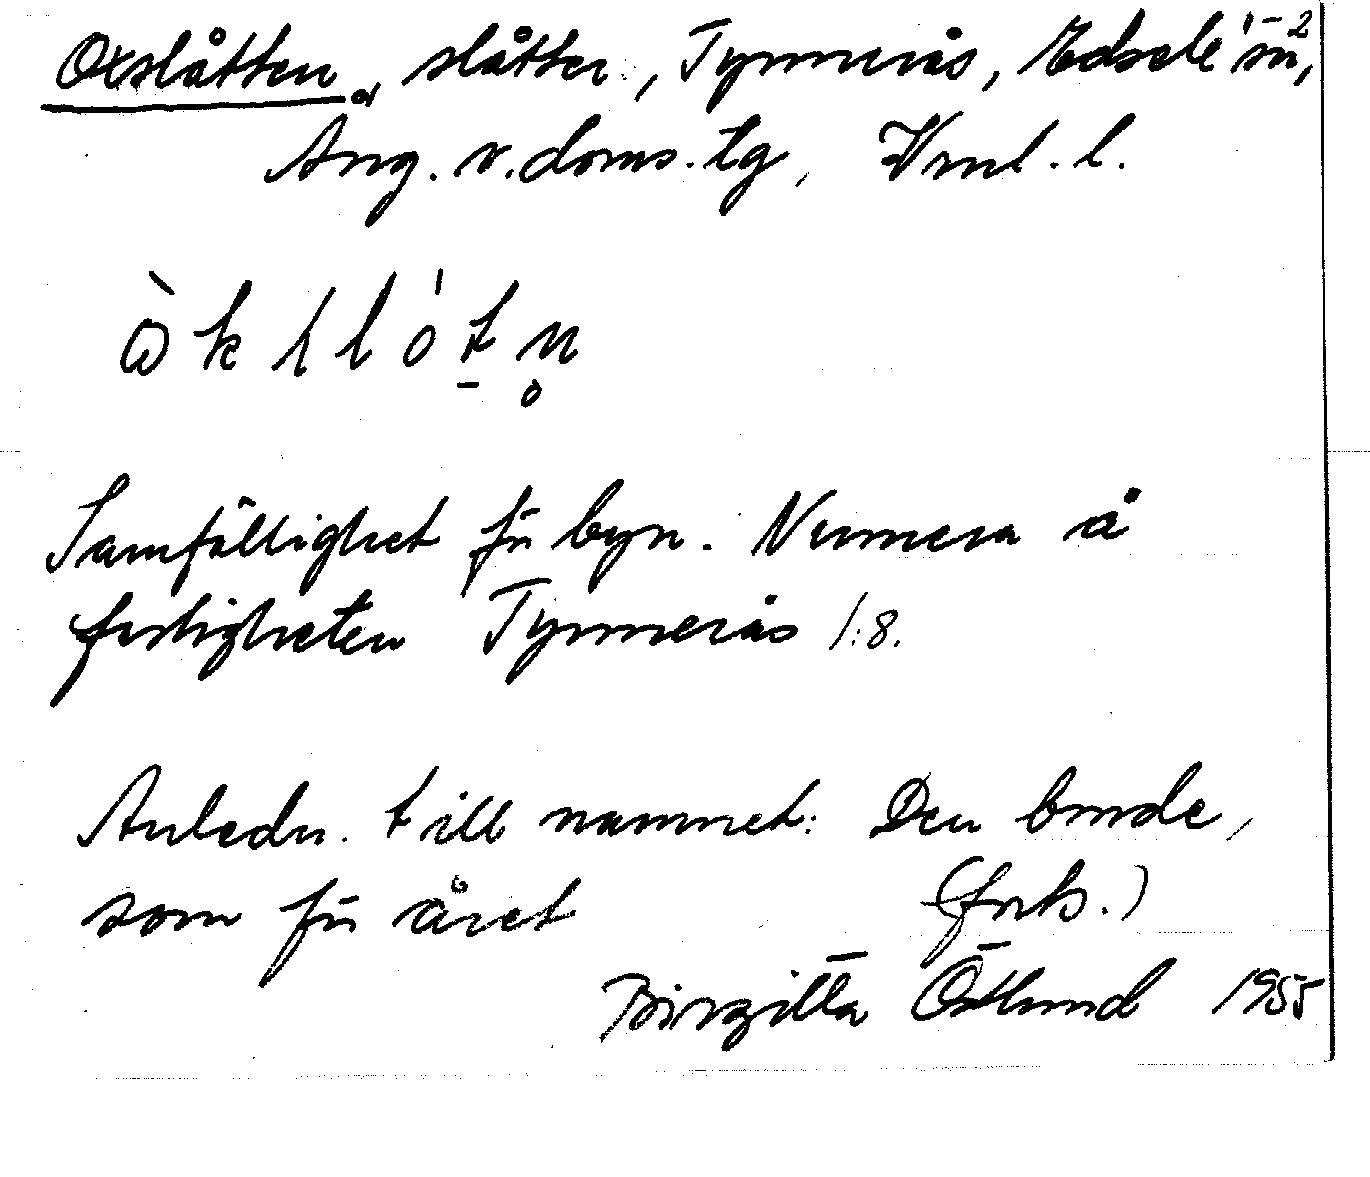 Oxslåtten, slåtter, Tynnerås, Edsele sn,
Ång. v. doms. tg, Vnl. l.
Samfällighet för byn. Numera å
fastigheten Tynnerås 1:8.
Anledn. till namnet: Den bonde,
som för året (forts.)
Birgitta Östlund 1955